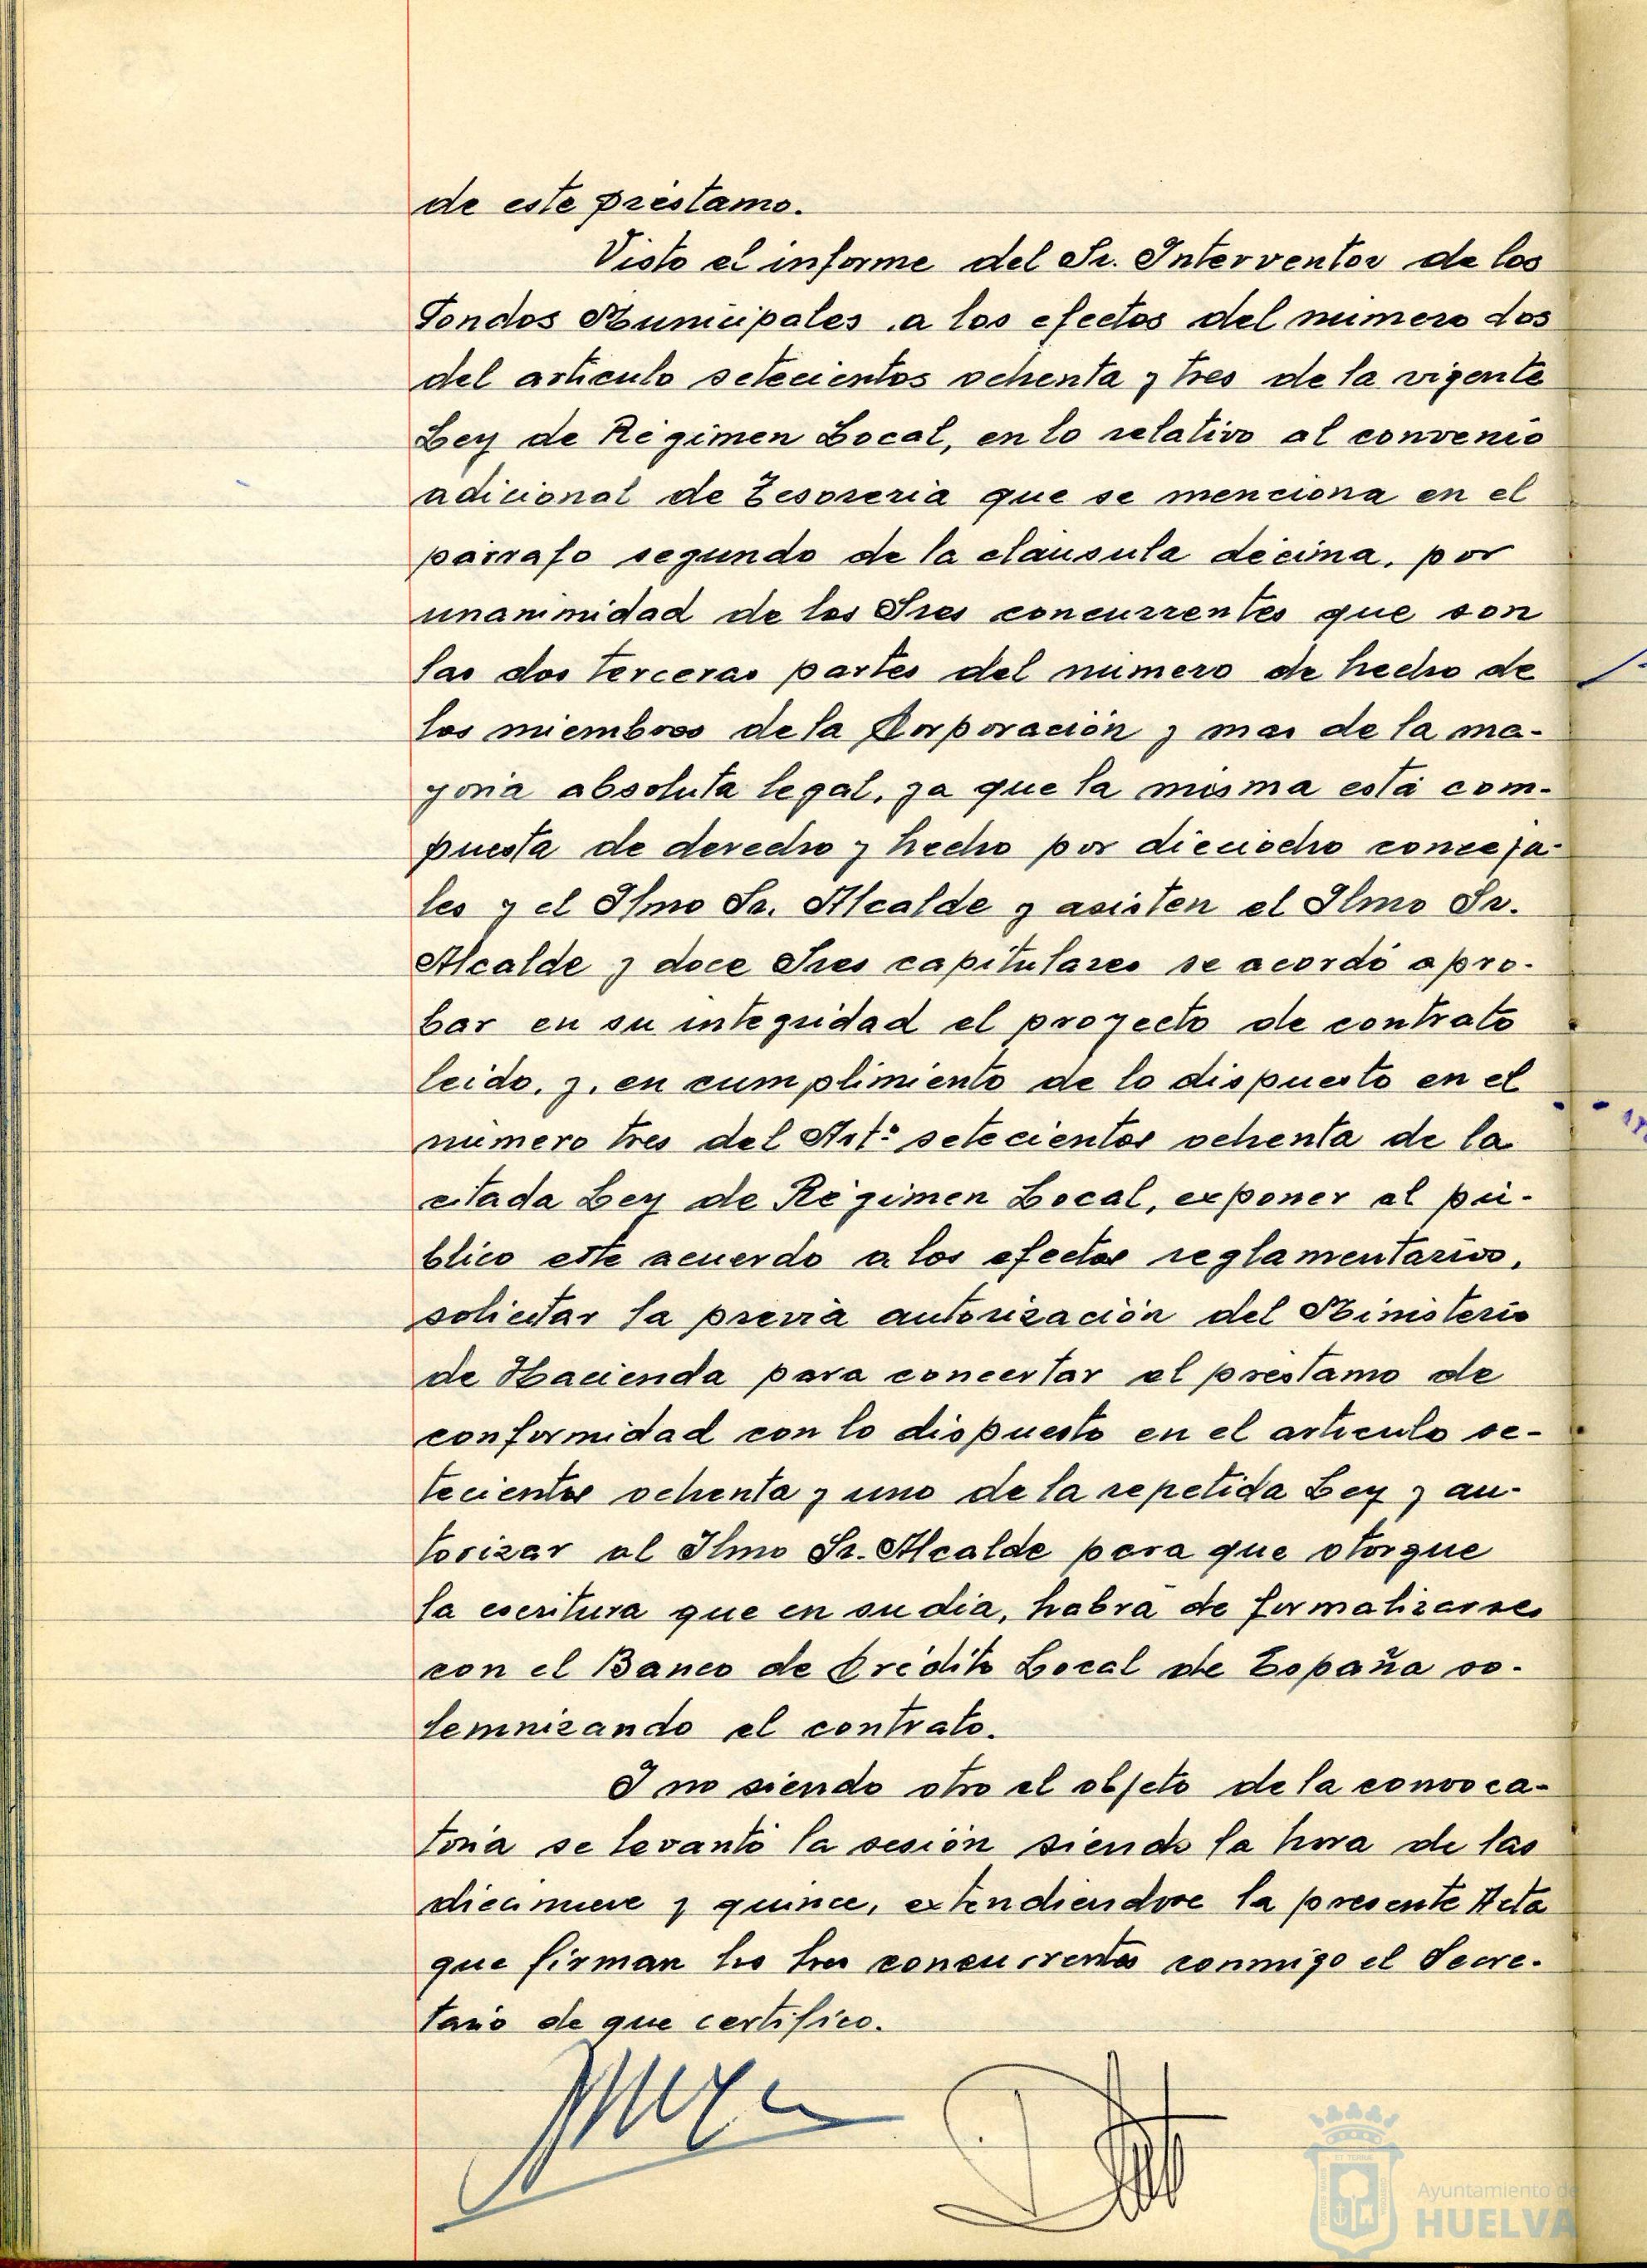 de este préstamo.
Visto el informe del Sr. Interventor de los
Fondos Municipales a los efectos del número dos
del artículo setecientos ochenta y tres de la vigente
Ley de Régimen Local, en lo relativo al convenio
adicional de Tesorería que se menciona en el
párrafo segundo de la cláusula décima, por
unanimidad de los Sres concurrentes que son
las dos terceras partes del número de hecho de
los miembros de la Corporación y mas de la ma-
yoría absoluta legal, ya que la misma está com-
puesta de derecho y hecho por dieciocho conceja-
les y el Ilmo Sr. Alcalde y asisten el Ilmo Sr.
Alcalde y doce Sres capitulares se acordó apro-
bar en su integridad el proyecto de contrato
leido, y, en cumplimiento de lo dispuesto en el
número tres del Artº setecientos ochenta de la
citada Ley de Régimen Local, exponer al pú-
blico este acuerdo a los efectos reglamentarios,
solicitar la previa autorización del Ministerio
de Hacienda para concertar el préstamo de
conformidad con lo dispuesto en el artículo se-
tecientos ochenta y uno de la repetida Ley y au-
torizar al Ilmo Sr. Alcalde para que otorgue
la escritura que en su dia, habrá de formalizarse
con el Banco de Crédito Local de España so-
lemnizando el contrato.
I no siendo otro el objeto de la convoca-
toria se levantó la sesión siendo la hora de las
diecinueve y quince, extendiendose la presente Acta
que firman los Sres concurrentes conmigo el Secre-
tario de que certifico.
Ayuntamiento de
HUELVA